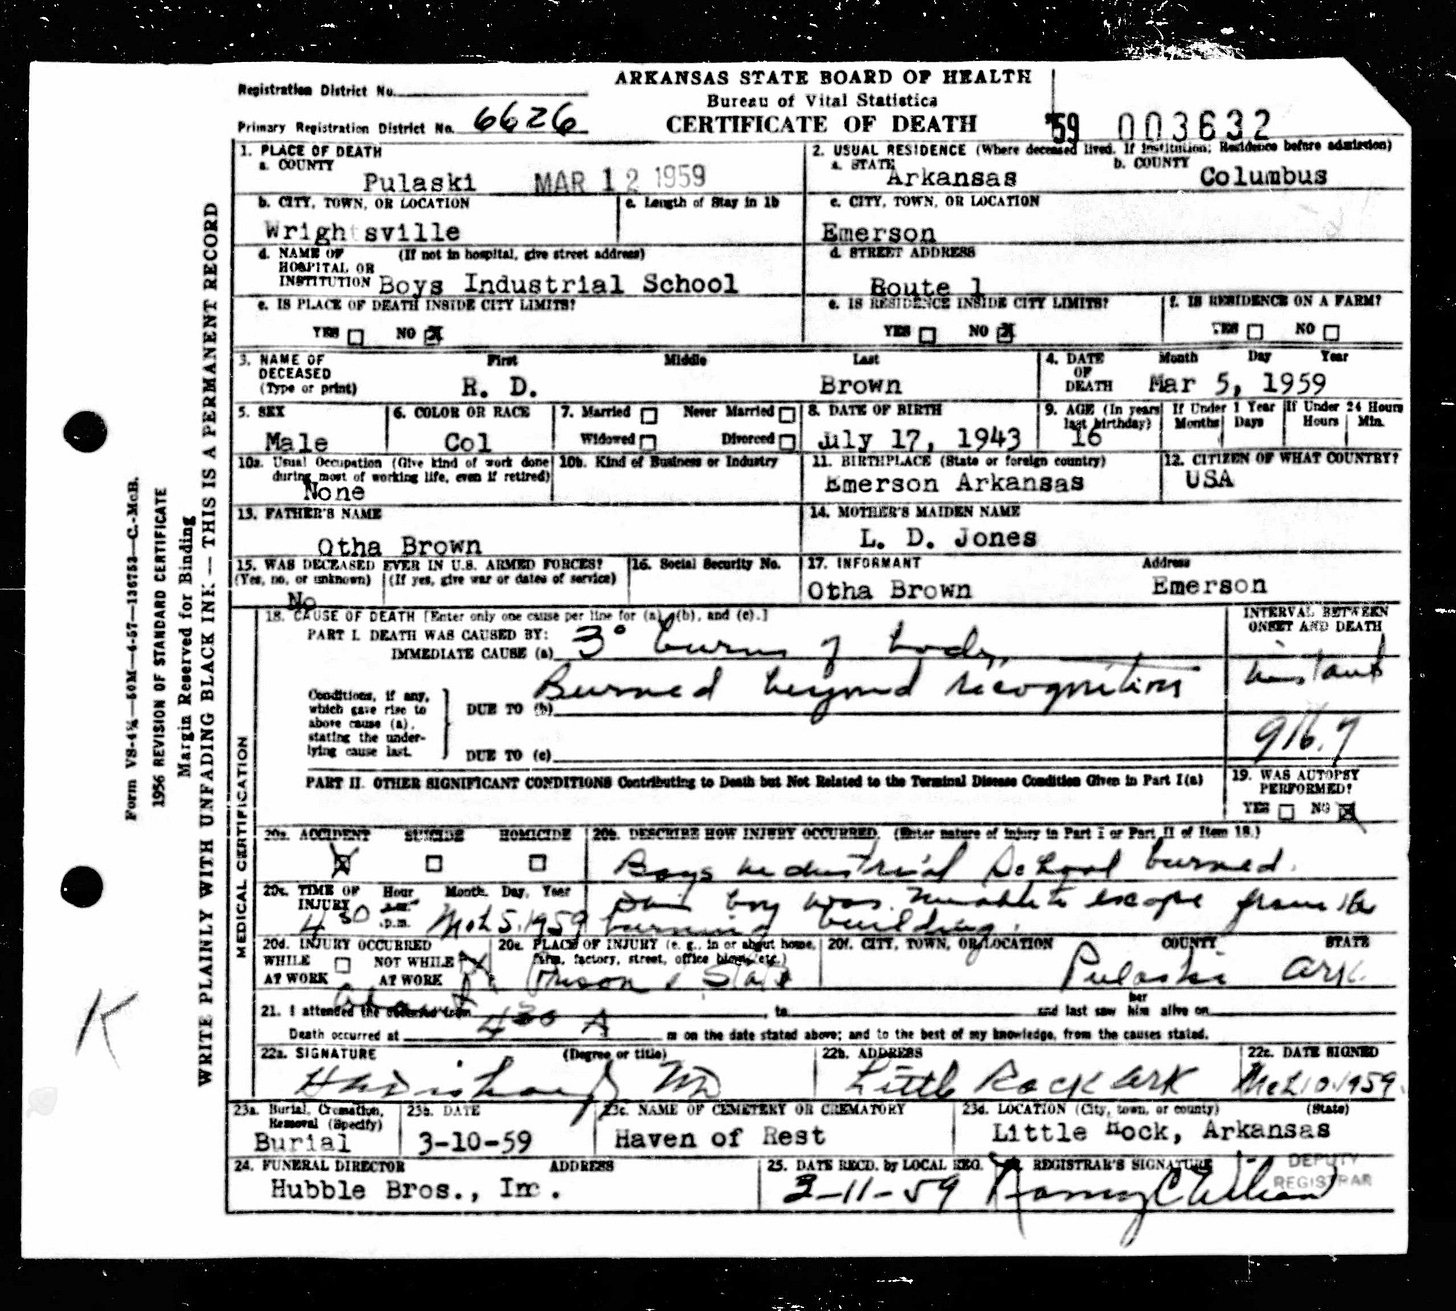 ARKANSAS STATE BOARD OF HEALTH
Bureau of Vital Statistics
CERTIFICATE OF DEATH
Registration District No.
Primary Registration District No. 6626
'59 003632
1. PLACE OF DEATH
a. COUNTY
Pulaski MAR 12 1959
2. USUAL RESIDENCE (Where deceased lived. If institution: Residence before admission)
a. STATE Arkansas b. COUNTY Columbus
b. CITY, TOWN, OR LOCATION
Wrightsville
c. Length of Stay in 1b
c. CITY, TOWN, OR LOCATION
Emerson
d. NAME OF (If not in hospital, give street address)
HOSPITAL OR
INSTITUTION Boys Industrial School
d. STREET ADDRESS
Route 1
e. IS PLACE OF DEATH INSIDE CITY LIMITS?
YES NO X
e. IS RESIDENCE INSIDE CITY LIMITS?
YES NO X
f. IS RESIDENCE ON A FARM?
YES NO
3. NAME OF DECEASED (Type or print)
First Middle Last
R. D. Brown
4. DATE OF DEATH Month Day Year
Mar 5, 1959
5. SEX
Male
6. COLOR OR RACE
Col
7. Married Never Married
Widowed Divorced
8. DATE OF BIRTH
July 17, 1943
9. AGE (In years last birthday)
16
If Under 1 Year
Months Days
If Under 24 Hours
Hours Min.
10a. Usual Occupation (Give kind of work done during most of working life, even if retired)
None
10b. Kind of Business or Industry
11. BIRTHPLACE (State or foreign country)
Emerson Arkansas
12. CITIZEN OF WHAT COUNTRY?
USA
13. FATHER'S NAME
Otha Brown
14. MOTHER'S MAIDEN NAME
L. D. Jones
15. WAS DECEASED EVER IN U.S. ARMED FORCES?
(Yes, no, or unknown) (If yes, give war or dates of service)
No
16. Social Security No.
17. INFORMANT Address
Otha Brown Emerson
18. CAUSE OF DEATH [Enter only one cause per line for (a), (b), and (c).]
INTERVAL BETWEEN ONSET AND DEATH
PART I. DEATH WAS CAUSED BY:
IMMEDIATE CAUSE (a) 3° burns of body,
instant
Conditions, if any, which gave rise to above cause (a), stating the underlying cause last.
DUE TO (b) Burned beyond recognition
DUE TO (c)
916.7
PART II. OTHER SIGNIFICANT CONDITIONS Contributing to Death but Not Related to the Terminal Disease Condition Given in Part I(a)
19. WAS AUTOPSY PERFORMED?
YES NO X
MEDICAL CERTIFICATION
20a. ACCIDENT SUICIDE HOMICIDE
X
20b. DESCRIBE HOW INJURY OCCURRED. (Enter nature of injury in Part I or Part II of Item 18.)
Boys industrial School burned.
boy was unable to escape from the
burning building.
20c. TIME OF INJURY Hour Month, Day, Year
a.m.
p.m.
4 30 Mch 5, 1959
20d. INJURY OCCURRED
WHILE AT WORK NOT WHILE AT WORK X
20e. PLACE OF INJURY (e. g., in or about home, farm, factory, street, office bldg., etc.)
Prison State
20f. CITY, TOWN, OR LOCATION COUNTY STATE
Pulaski Ark.
21. I attended the deceased from to and last saw her him alive on
Death occurred at 4 30 A m on the date stated above; and to the best of my knowledge, from the causes stated.
22a. SIGNATURE (Degree or title)
MD
22b. ADDRESS
Little Rock Ark
22c. DATE SIGNED
Mch 10, 1959
23a. Burial, Cremation, Removal (Specify)
Burial
23b. DATE
3-10-59
23c. NAME OF CEMETERY OR CREMATORY
Haven of Rest
23d. LOCATION (City, town, or county) (State)
Little Rock, Arkansas
24. FUNERAL DIRECTOR ADDRESS
Hubble Bros., Inc.
25. DATE RECD. by LOCAL REG.
3-11-59
REGISTRAR'S SIGNATURE
DEPUTY REGISTRAR
Form VS-4½—50M—4-57—136753—C.-McB.
1956 REVISION OF STANDARD CERTIFICATE
Margin Reserved for Binding
WRITE PLAINLY WITH UNFADING BLACK INK — THIS IS A PERMANENT RECORD
K